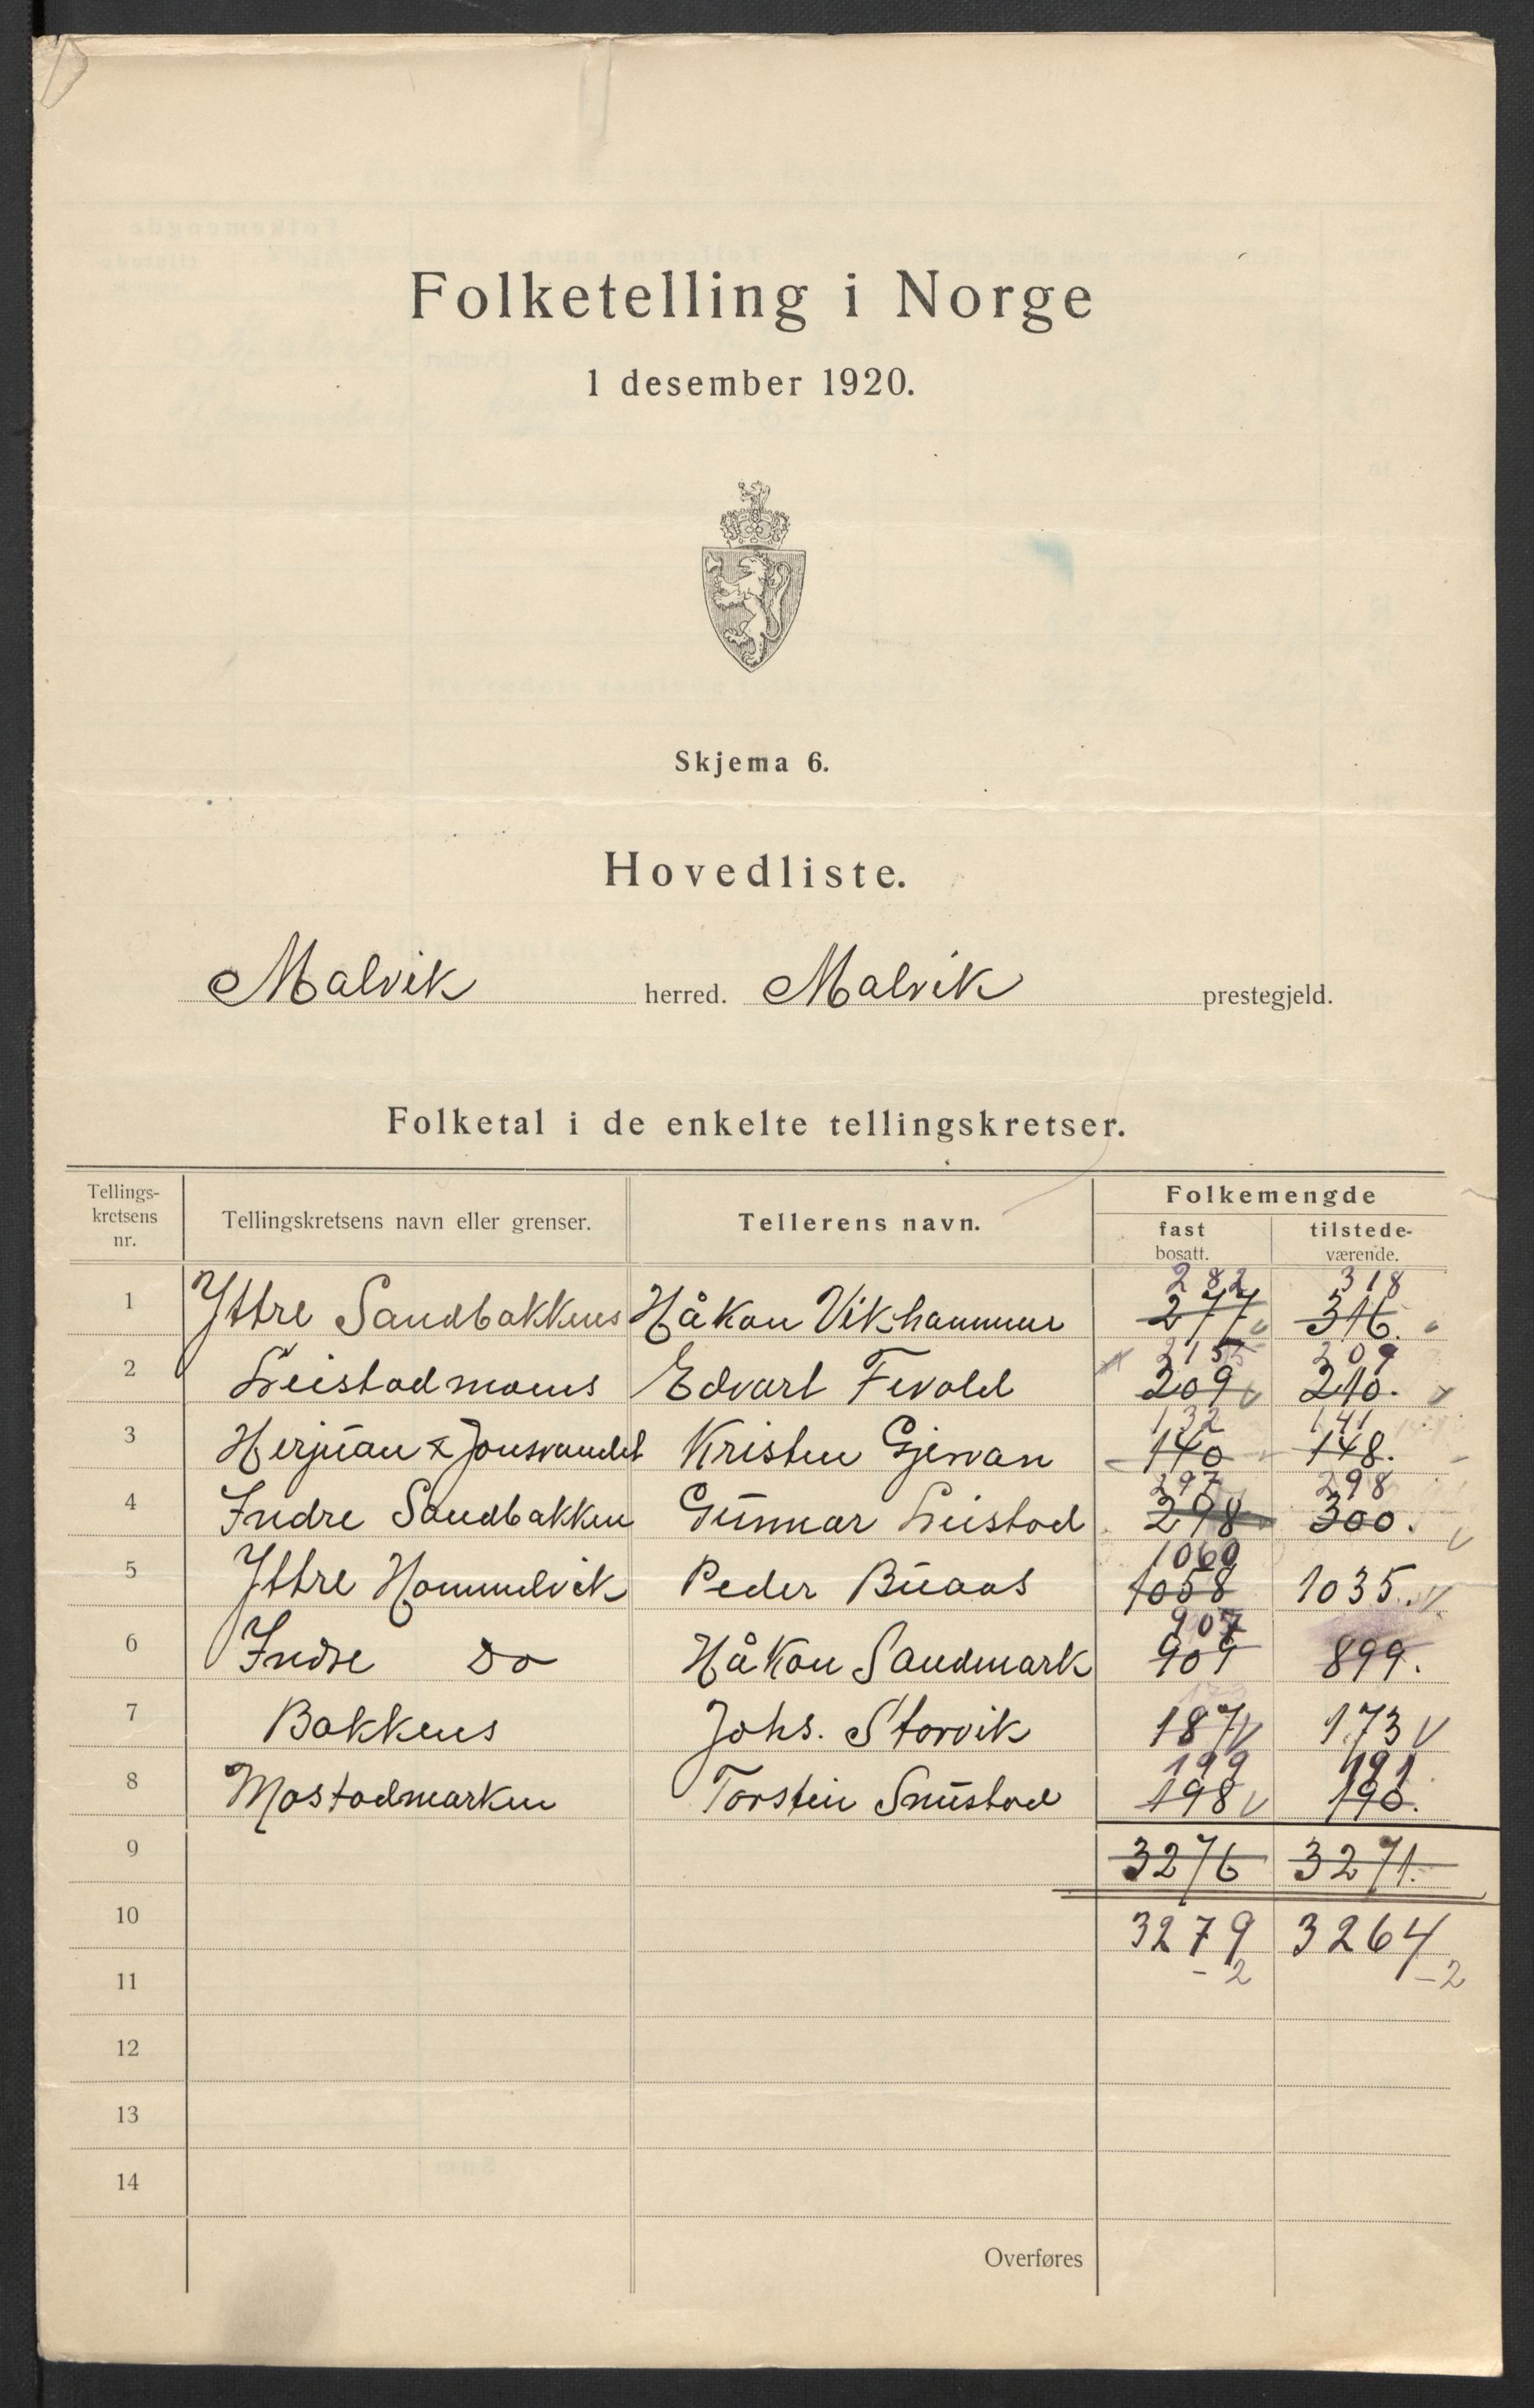 Folketelling i Norge
1 desember 1920.
Skjema 6.
Hovedliste.
Malvik herred. Malvik prestegjeld.
Folketal i de enkelte tellingskretser.
Tellings-kretsens nr. Tellingskretsens navn eller grenser. Tellerens navn. Folkemengde
fast bosatt. tilstede-værende.
282 318
1 Yttre Sandbakkens Håkon Vikhammer 277 316.
215 209
2 Leistadmoens Edvart Fevold 209 210.
132 141
3 Herjuan & Jonsvandet Kristen Gjervan 140 148.
297 298
4 Indre Sandbakken Gunnar Leistad 298 300.
1060
5 Yttre Hommelvik Peder Buaas 1058 1035.
907
6 Indre Do Håkon Sandmark 909 899.
7 Bakkens Johs. Storvik 187 173
199 191
8 Mostadmarken Torstein Snustad 198 190.
9 3276 3271.
10 3279 3264
11 -2 -2
12
13
14
Overføres